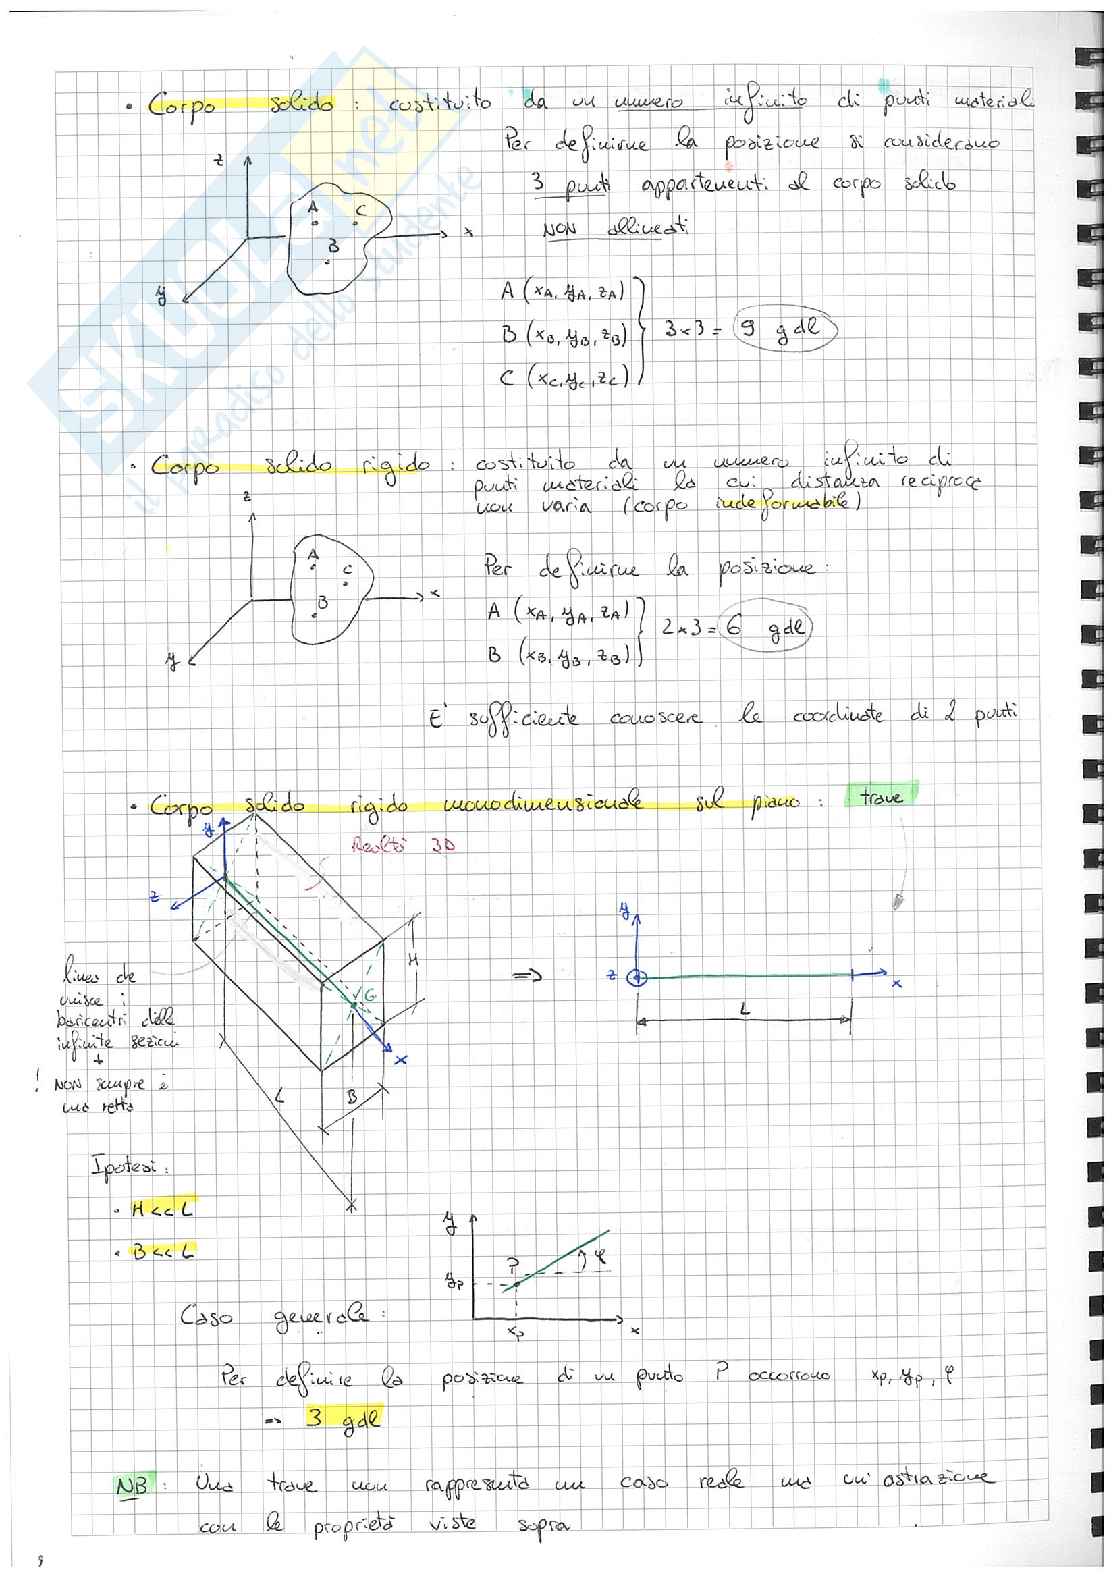 • Corpo solido : costituito da un numero infinito di punti materiali
Per definirne la posizione si considerano
3 punti appartenenti al corpo solido
NON allineati
z
A
C
B
x
y
A (xA, yA, zA)
B (xB, yB, zB)
C (xC, yC, zC)
3×3 = 9 gdl
SKUOLA.net
il paradiso dello studente
• Corpo solido rigido : costituito da un numero infinito di
punti materiali la cui distanza reciproca
non varia (corpo indeformabile)
z
A
C
B
x
y
Per definirne la posizione:
A (xA, yA, zA)
B (xB, yB, zB)
2×3 = 6 gdl
E' sufficiente conoscere le coordinate di 2 punti
• Corpo solido rigido monodimensionale sul piano : trave
y
Realtà 3D
z
H
G
x
L
B
linea che
unisce i
baricentri delle
infinite sezioni
↓
! NON sempre è
una retta
⇒
y
z
x
L
Ipotesi:
• H << L
• B << L
y
P
φ
yP
xP
x
Caso generale:
Per definire la posizione di un punto P occorrono xP, yP, φ
⇒ 3 gdl
NB : Una trave non rappresenta un caso reale ma un'astrazione
con le proprietà viste sopra